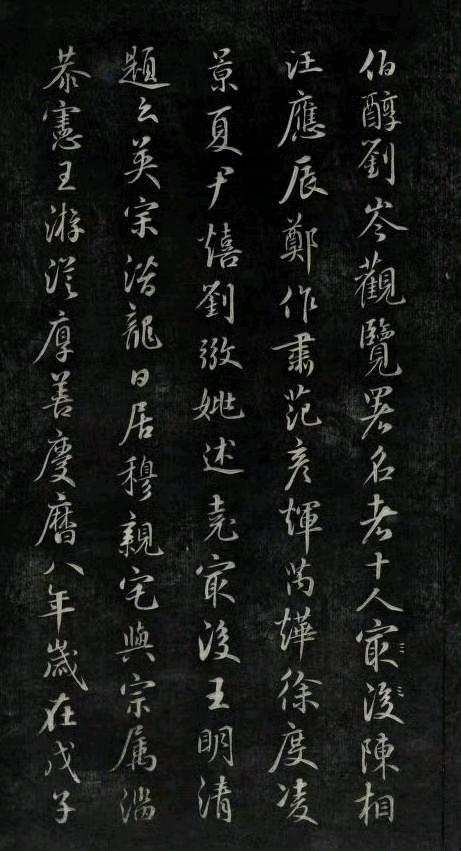 伯醇劉岑觀覽署名者十人㝡後陳相
汪應辰鄭作肅范彥輝芮燁徐度凌
景夏尹熺劉姚述堯㝡後王明清
題云英宗潛龍日居穆親宅與宗屬淄
恭憲王游從厚善慶曆八年歲在戊子